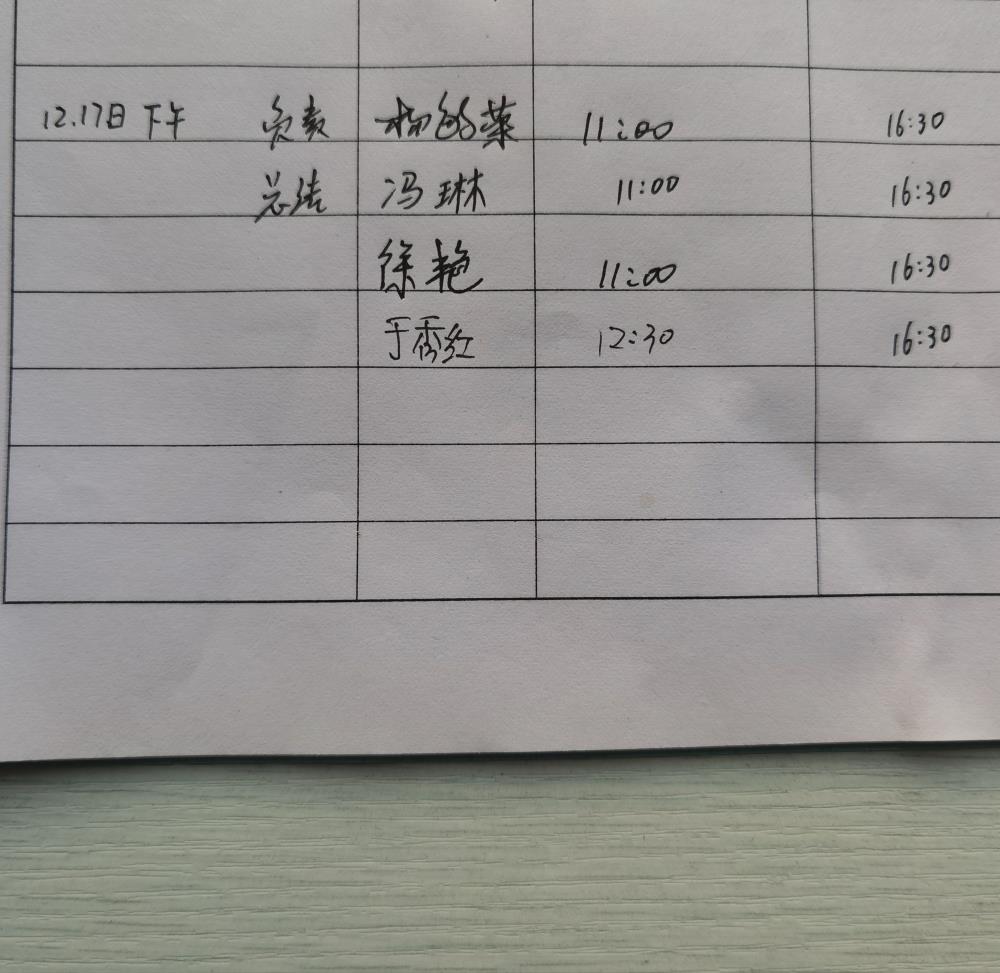 12.17日 下午 负责 11:00 16:30
总结 冯琳 11:00 16:30
徐艳 11:00 16:30
于秀红 12:30 16:30